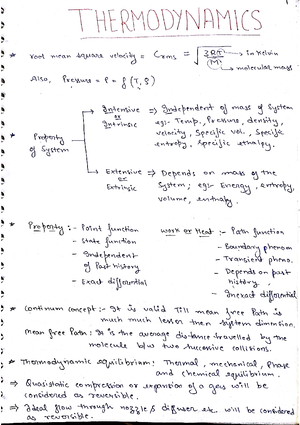 THERMODYNAMICS
* root mean square velocity = Crms = √ 3RT → in Kelvin
(M) → molecular mass
Also, Pressure = P = f (T, ρ)
Intensive or Intrinsic ⇒ Independent of mass of System
eg:- Temp, Pressure, density,
velocity, Specific vol., Specific
entropy, specific ethalpy.
* Property of System
Extensive or Extrinsic ⇒ Depends on mass of the
System; eg:- Energy, entropy,
volume, enthalpy.
* Property :- - Point function
- State function
- Independent
of Past history
- Exact differential
work or Heat :- - Path function
- Boundary phenom
- Transient pheno.
- Depends on past
history,
- Inexact differential
* Continum concept :- It is valid Till mean free Path is
much much lesser then system dimintion.
Mean free Path : It is the average distance travelled by the
molecule b/w two successive collisions.
* Thermodynamic equilibrium : Thermal, mechanical, Phase
and chemical equilibrium.
⇒ Quasistatic compression or expansion of a gas will be
considered as reversible.
⇒ Ideal flow through nozzle & diffuser etc. will be considered
as reversible.